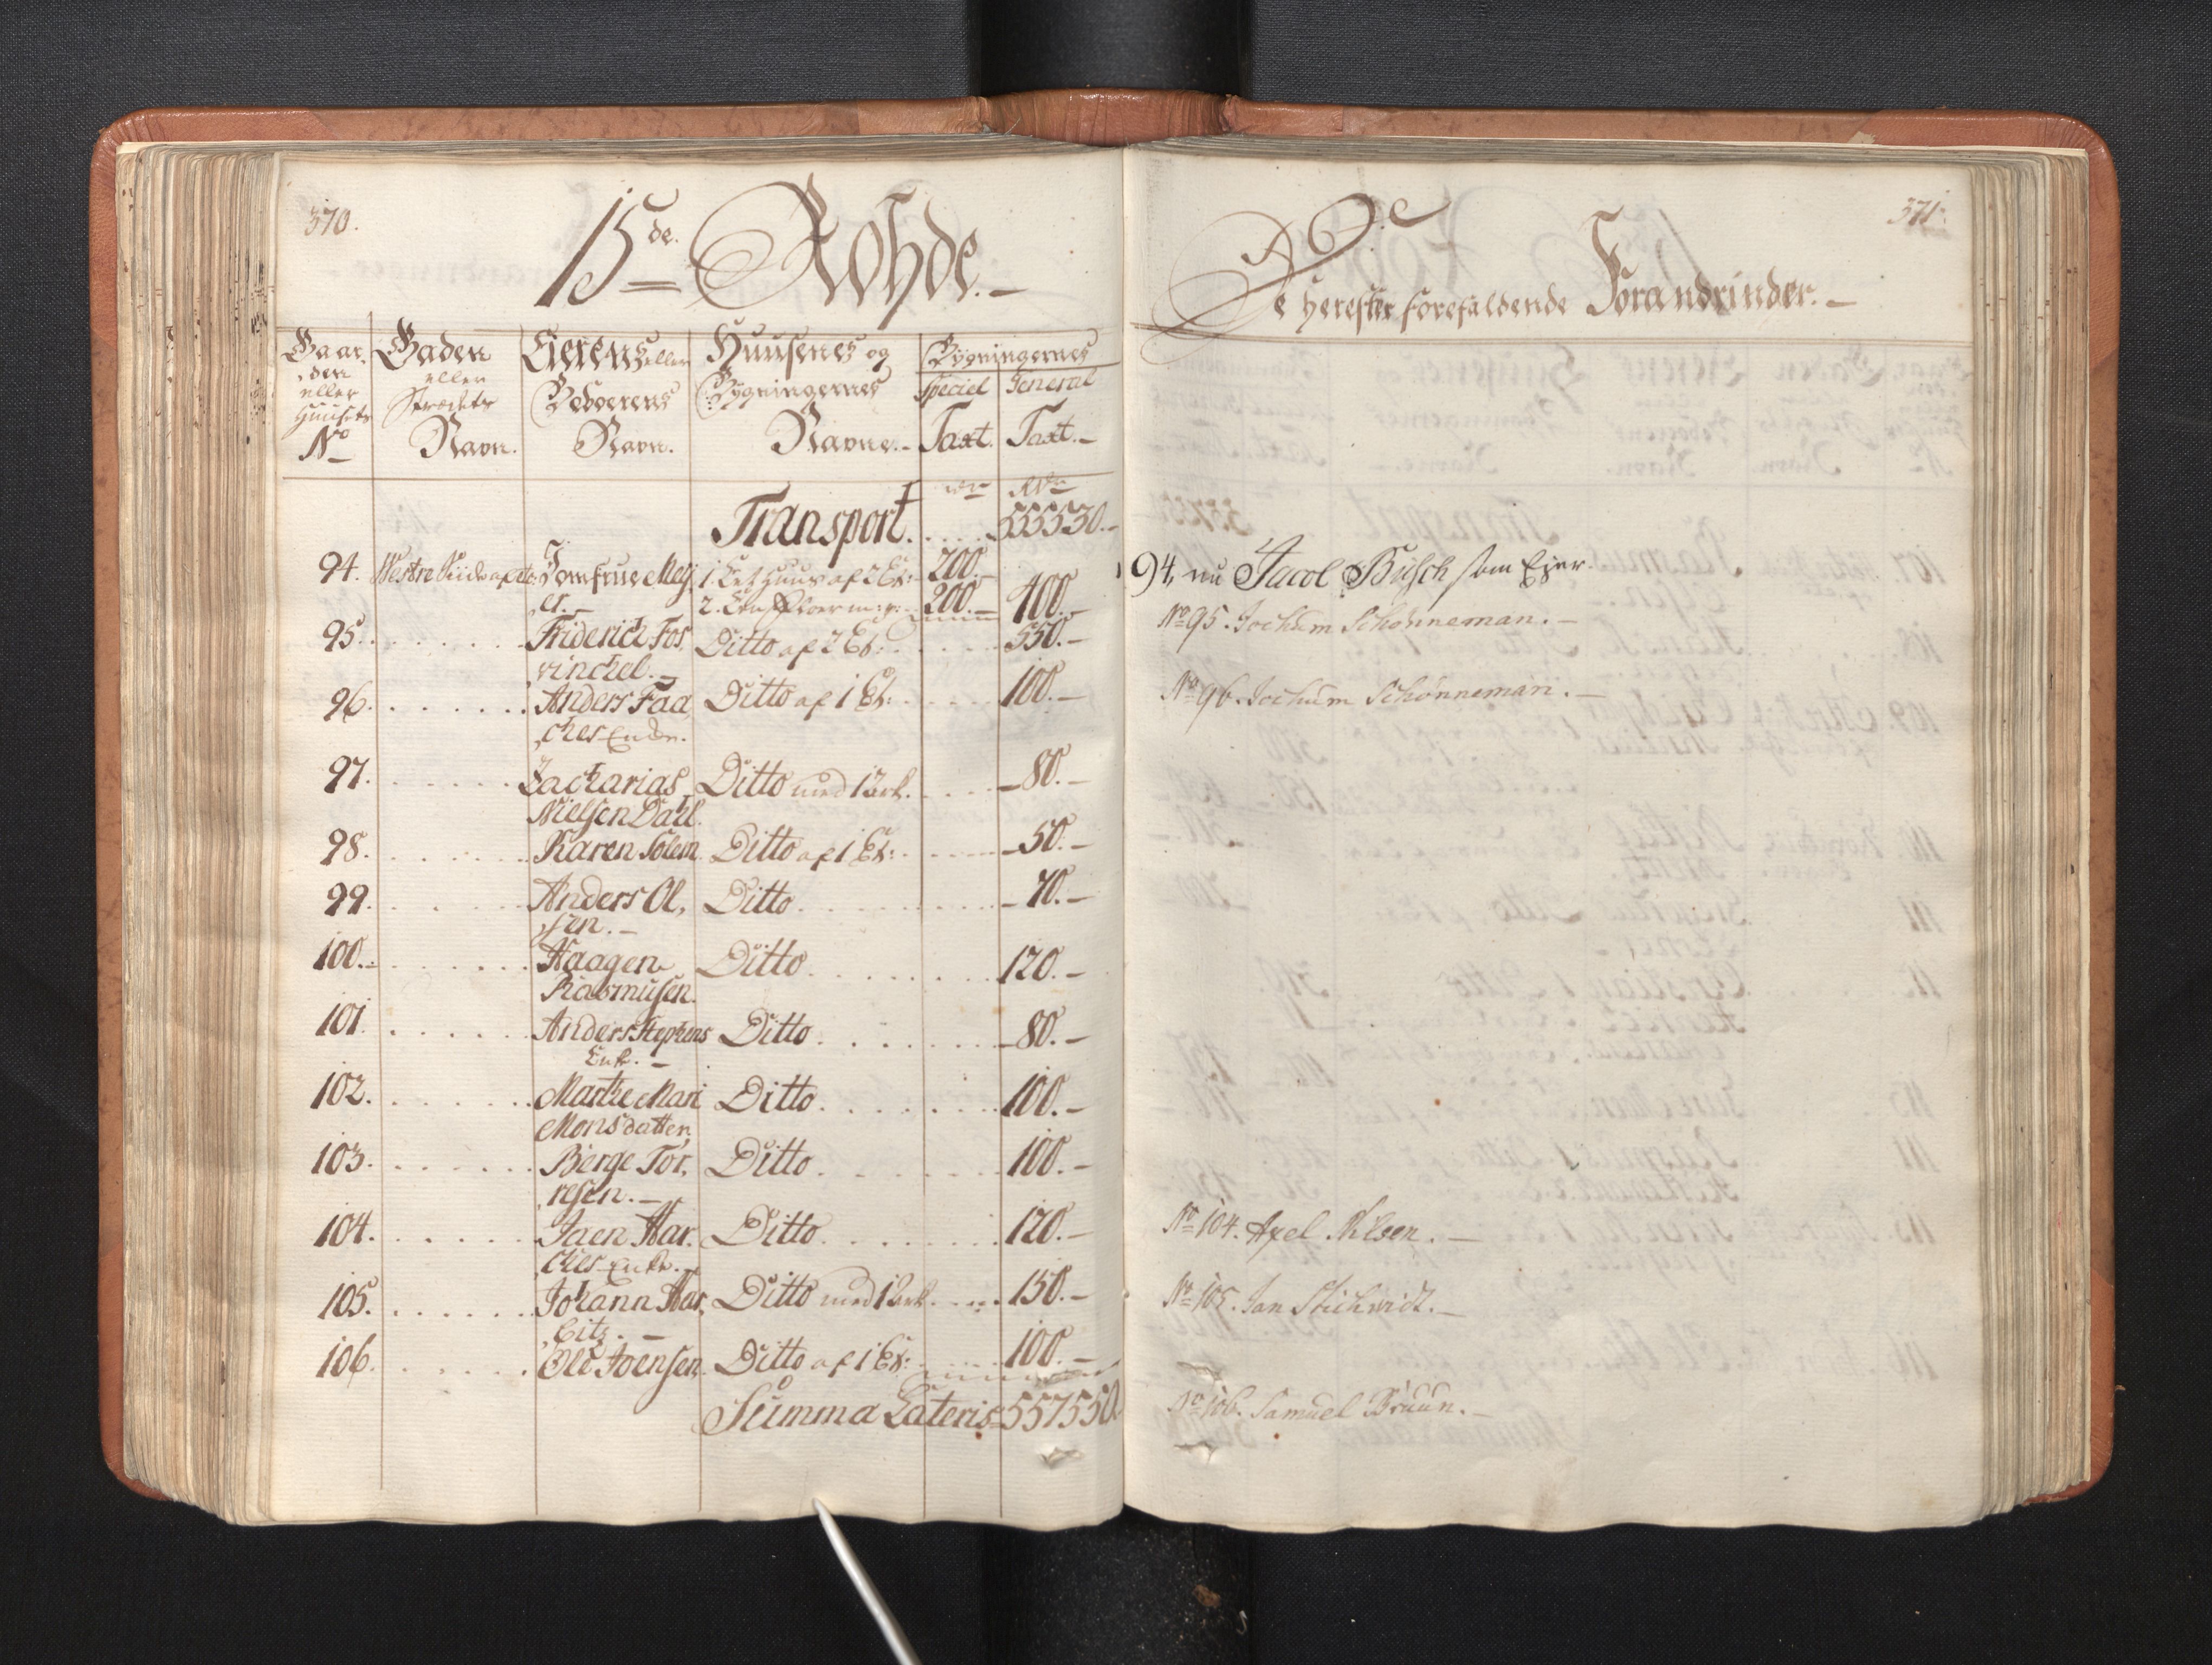 370.
15de Rohde.
Gaar,
den
eller
Huusets
No
Gaden
eller
Strædets
Navn.
Eierens eller
Beboerens
Navn.
Huusenes og
Bygningernes
Navne.
Bygningernes
Speciel General
Taxt. Taxt.
Transport. 555530.
94. Westre Jomfrue Meÿ, 1. Et Huus af 2 Et: 200.
er. 2. 200. 400.
95. Friderich Fos Ditto af 2 Et: 550.
vinckel.
96. Anders Faa Ditto af 1 Et: 100.
ches Enke.
97. Zacharias Ditto med 1 Ark. 80.
Nielsen Dahl.
98. Karen Solem Ditto af 1 Et: 50.
99. Anders Ol, Ditto 70.
sen.
100. Haagen Ditto 120.
Rasmusen.
101. Anders Stephens Ditto 80.
Enke.
102. Marthe Mari Ditto 100.
Monsdatter
103. Berge Tor, Ditto 100.
resen.
104. Jaen Har, Ditto 120.
ches Enke.
105. Johann Har, Ditto med 1 Ark. 150.
bitz.
106. Ole Joensen Ditto af 1 Et: 100.
Summa Lateris 557550
371.
De herefter forefaldende Forandringer.
94, nu Jacob Busch som Ejer
No 95. Jochum Schönneman.
No 96. Jochum Schönneman.
No 104. Axel Nilsen.
No 105. Jan Stichwidt.
No 106. Samuel Bruun.